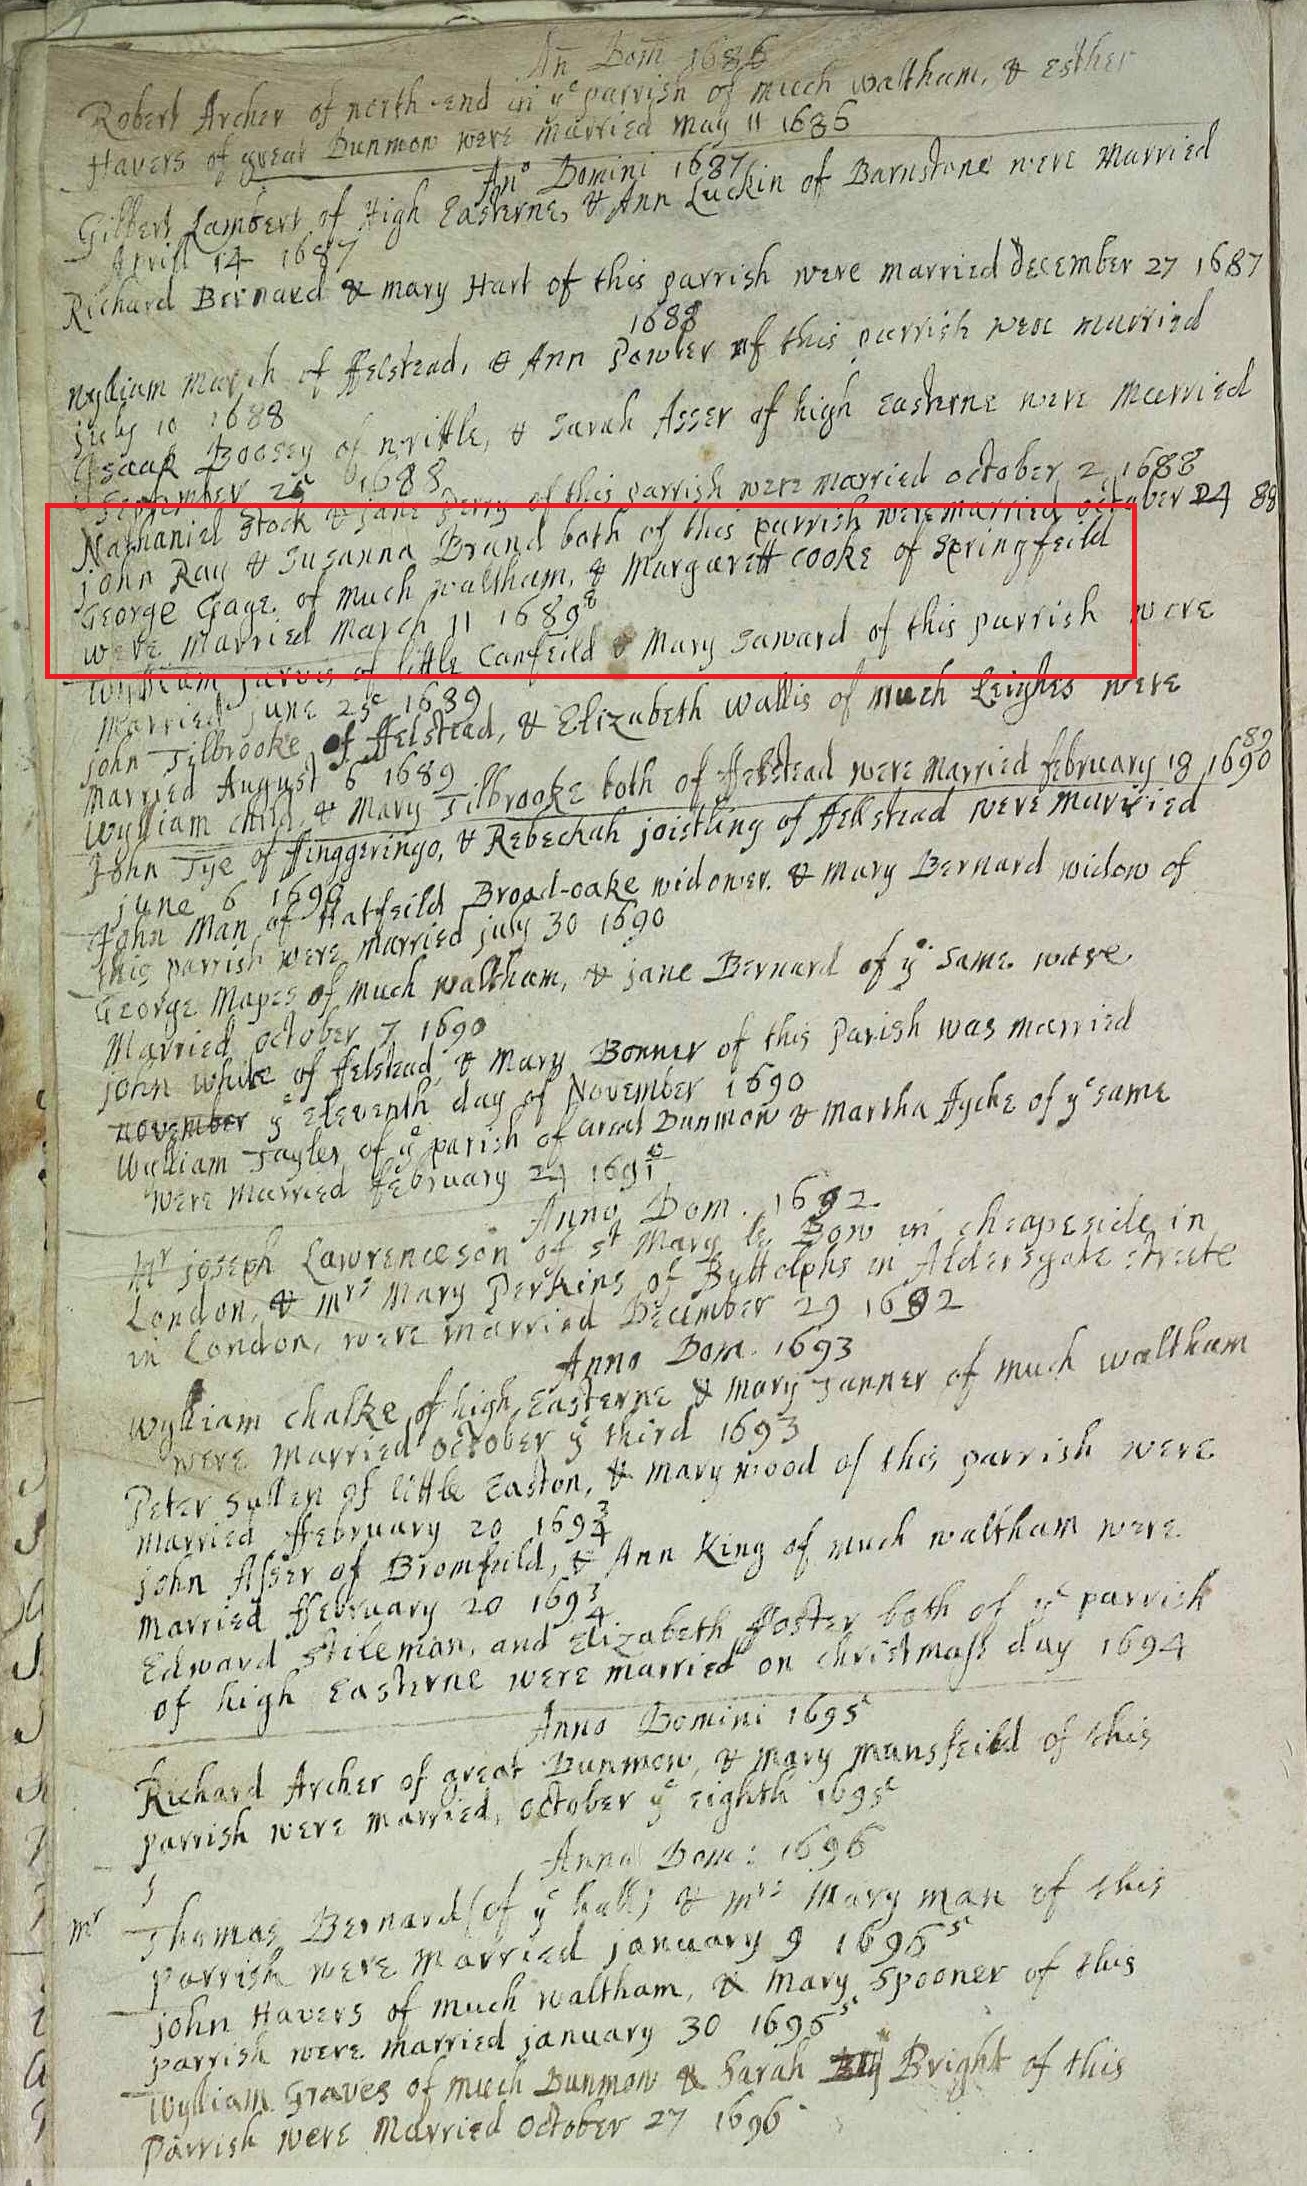 An Dom 1686
Robert Archer of north-end in yᵉ parrish of much waltham, & Esther
Havers of great Dunmow were married may 11 1686
Anᵒ Domini 1687
Gilbert Lambert of High Easterne, & Ann Luckin of Barnstone were married
Aprill 14 1687
Richard Bernard & mary Hart of this parrish were married December 27 1687
1688
Wylliam march of ffelstead, & Ann Powler of this parrish were married
july 10 1688
Isaak Boosey of writtle, & Sarah Asser of high easterne were married
September 25 1688
Nathaniel Stock & jane Perry of this parrish were married october 2 1688
john Ray & Susanna Brand both of this parrish were married october 24 88
George Gage of much waltham, & Margarett Cooke of Springfeild
were married march 11 1689⁸
Wylliam jarvis of little Canfeild & Mary Saward of this parrish were
married june 25ᵉ 1689
john Tilbrooke of ffelstead, & Elizabeth wallis of much Leighes were
married August 6 1689
89
Wylliam child & Mary Tilbrooke both of ffelstead were married february 18 1690
John Tye of ffinggeringo, & Rebeckah joistling of ffellstead were married
june 6 1690
John Man of Hatfeild Broad-oake widower. & mary Bernard widow of
this parrish were married july 30 1690
George Mapes of much waltham, & jane Bernard of yᵉ same were
Married october 7 1690
john white of felstead, & Mary Bonner of this Parish was married
november yᵉ Eleventh day of November 1690
Wylliam Tayler of yᵉ parish of Great Dunmow & Martha ffyche of yᵉ same
were married february 24 1691⁰
Anno Dom. 1692
Mʳ joseph Lawrenceson of sᵗ Mary le Bow in cheapeside in
London, & mʳˢ Mary Perkins of Byttolphs in Aldersgate streete
in London, were married December 29 1692
Anno Dom. 1693
Wylliam chalke of high Easterne & mary Tanner of much waltham
were married october yᵉ third 1693
Peter Sullen of little Easton, & mary wood of this parrish were
married ffebruary 20 169¾
john Asser of Bromfeild, & Ann King of much waltham were
married ffebruary 20 169¾
Edward Stileman, and Elizabeth ffoster both of yᵉ parrish
of high Easterne were married on christmass day 1694
Anno Domini 1695ᵉ
Richard Archer of great Dunmow, & mary mansfeild of this
parrish were married, october yᵉ eighth 1695ᵉ
Anno Dom: 1696
mʳ Thomas Bernard (of yᵉ hall) & mʳˢ Mary man of this
parrish were married january 9 1696⁵
john Havers of much waltham, & mary Spooner of this
parrish were married january 30 1696⁵
Wylliam Graves of much Dunmow & Sarah Bright of this
Parrish were Married october 27 1696